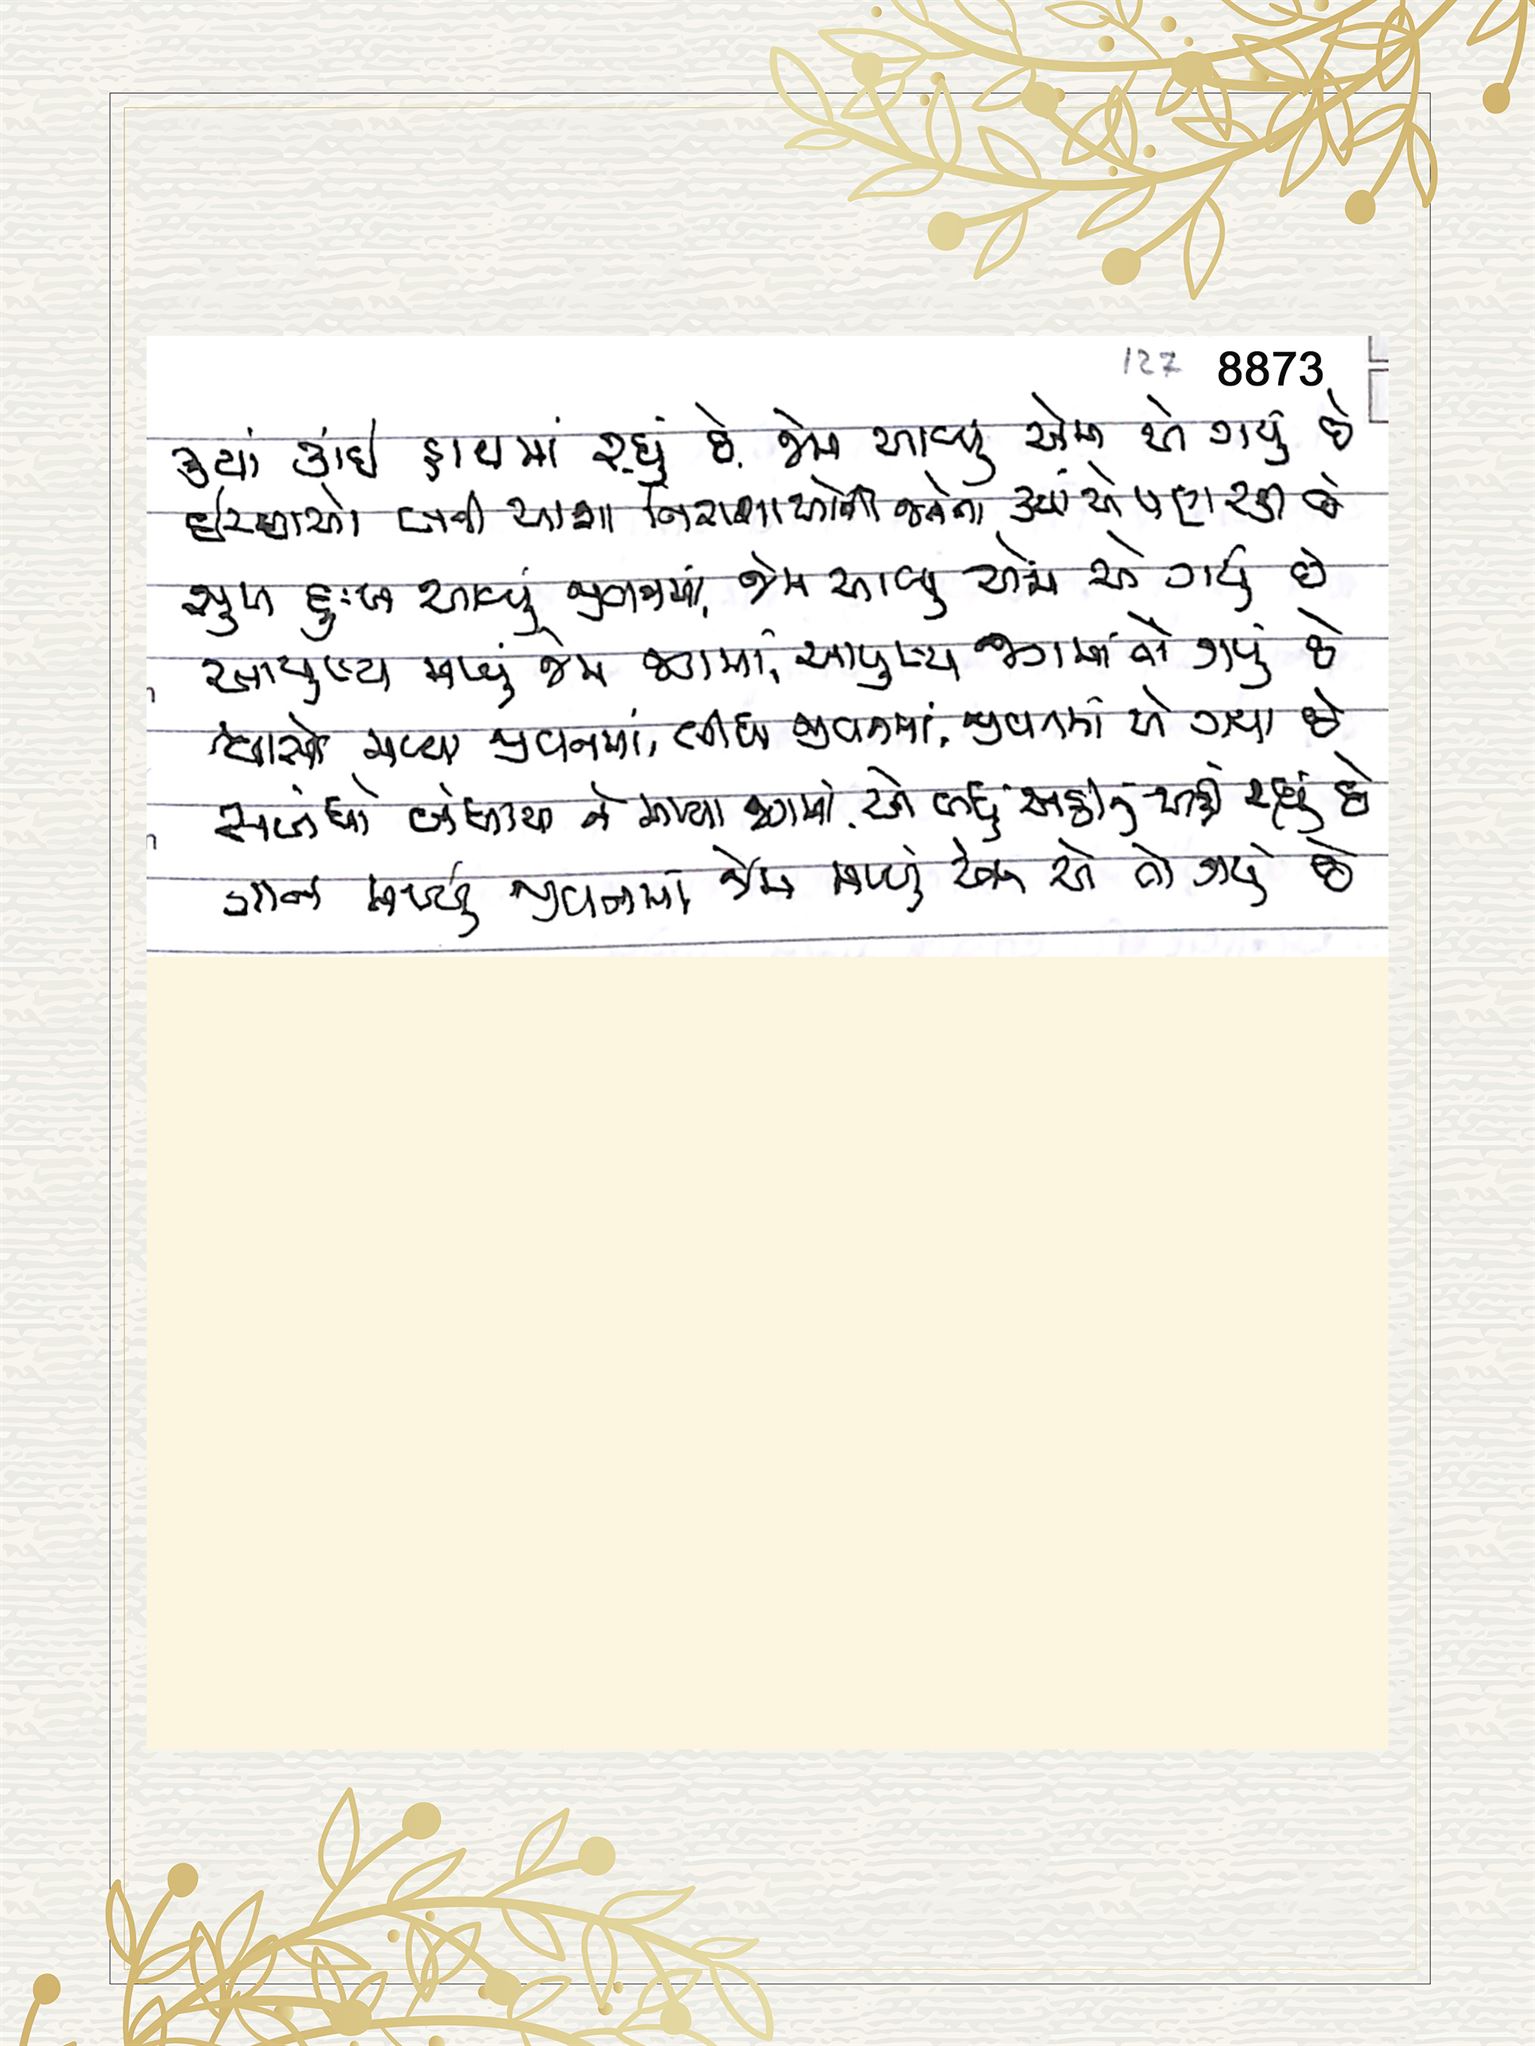 127 8873
ક્યાં કાંઈ હાથમાં રહ્યું છે. જેમ આવ્યુ એમ એ ગયું છે
ઈચ્છાઓ બની આશા નિરાશાઓની ક્યાં એ પણ રહી છે
સુખ દુઃખ આવ્યું જીવનમાં, જેમ આવ્યુ એમ એ ગયું છે
આયુષ્ય મળ્યું જેમ જગમાં, આયુષ્ય જગમાં વીતે ગયું છે
શ્વાસો મળ્યા જીવનમાં, લીધા જીવનમાં, જીવનમાં એ ગયા છે
સબંધો બંધાયા ને મળ્યા જગમાં. એ બધું અહીંનું અહીં રહ્યું છે
માન મળ્યું જીવનમાં જેમ મળ્યું એમ એ તો ગયું છે